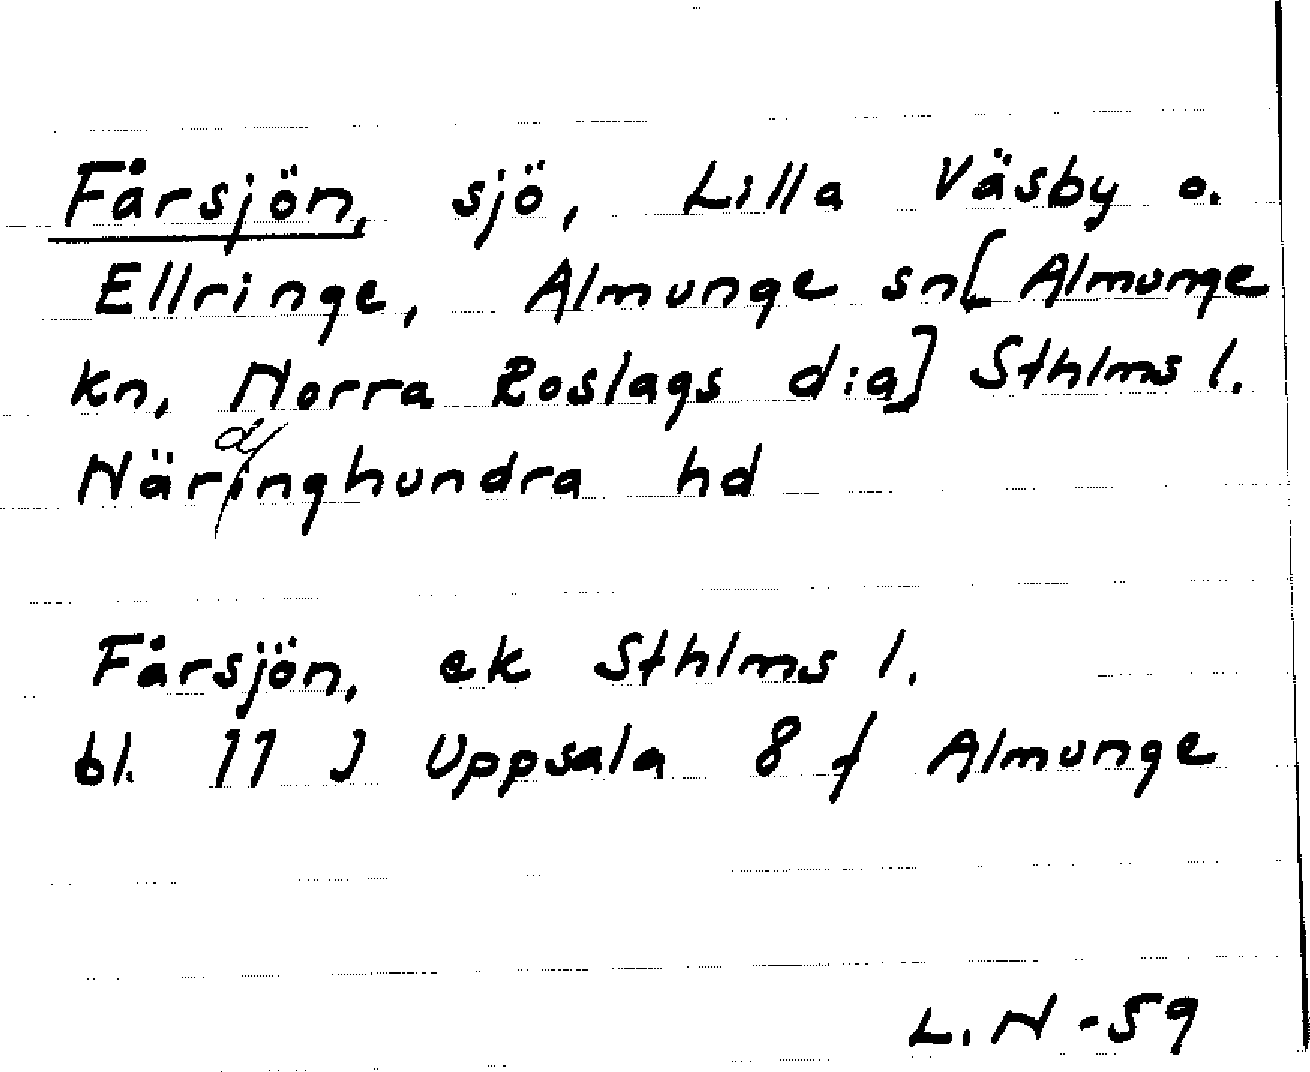 Fårsjön, sjö, Lilla Väsby o.
Ellringe, Almunge sn [Almunge
kn, Norra Roslags d:a] Sthlms l.
Närdinghundra hd
Fårsjön, ek Sthlms l.
bl. 11 J Uppsala 8 f Almunge
L. N -59